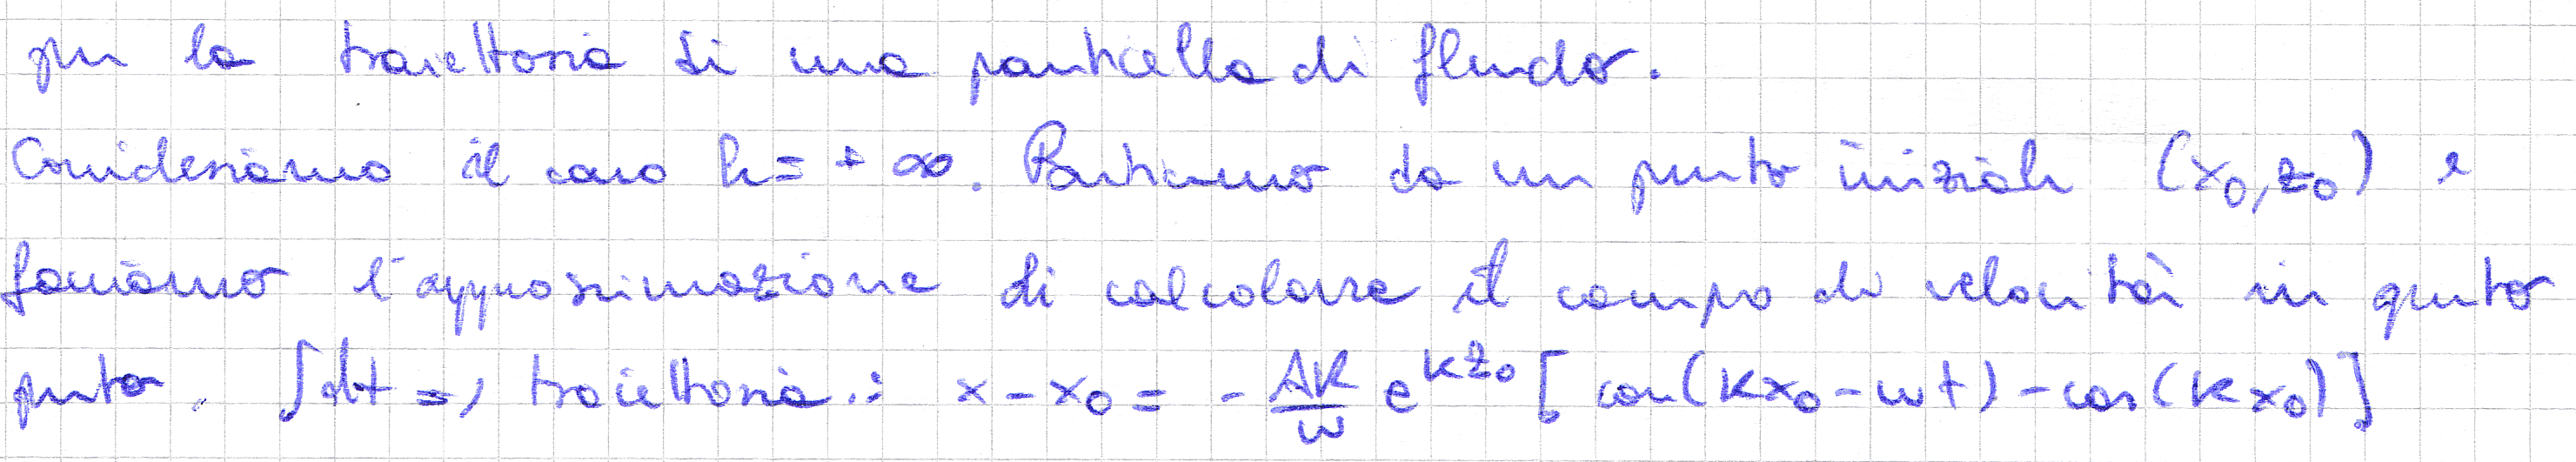 per la traiettoria di una particella di fluido.
Consideriamo il caso h = +∞. Partiamo da un punto iniziale (x₀, z₀) e
facciamo l'approssimazione di calcolare il campo di velocità in questo
punto. ∫dt ⇒ traiettoria: x - x₀ = - \frac{AK}{ω} e^{Kz₀} [cos(Kx₀ - ωt) - cos(Kx₀)]